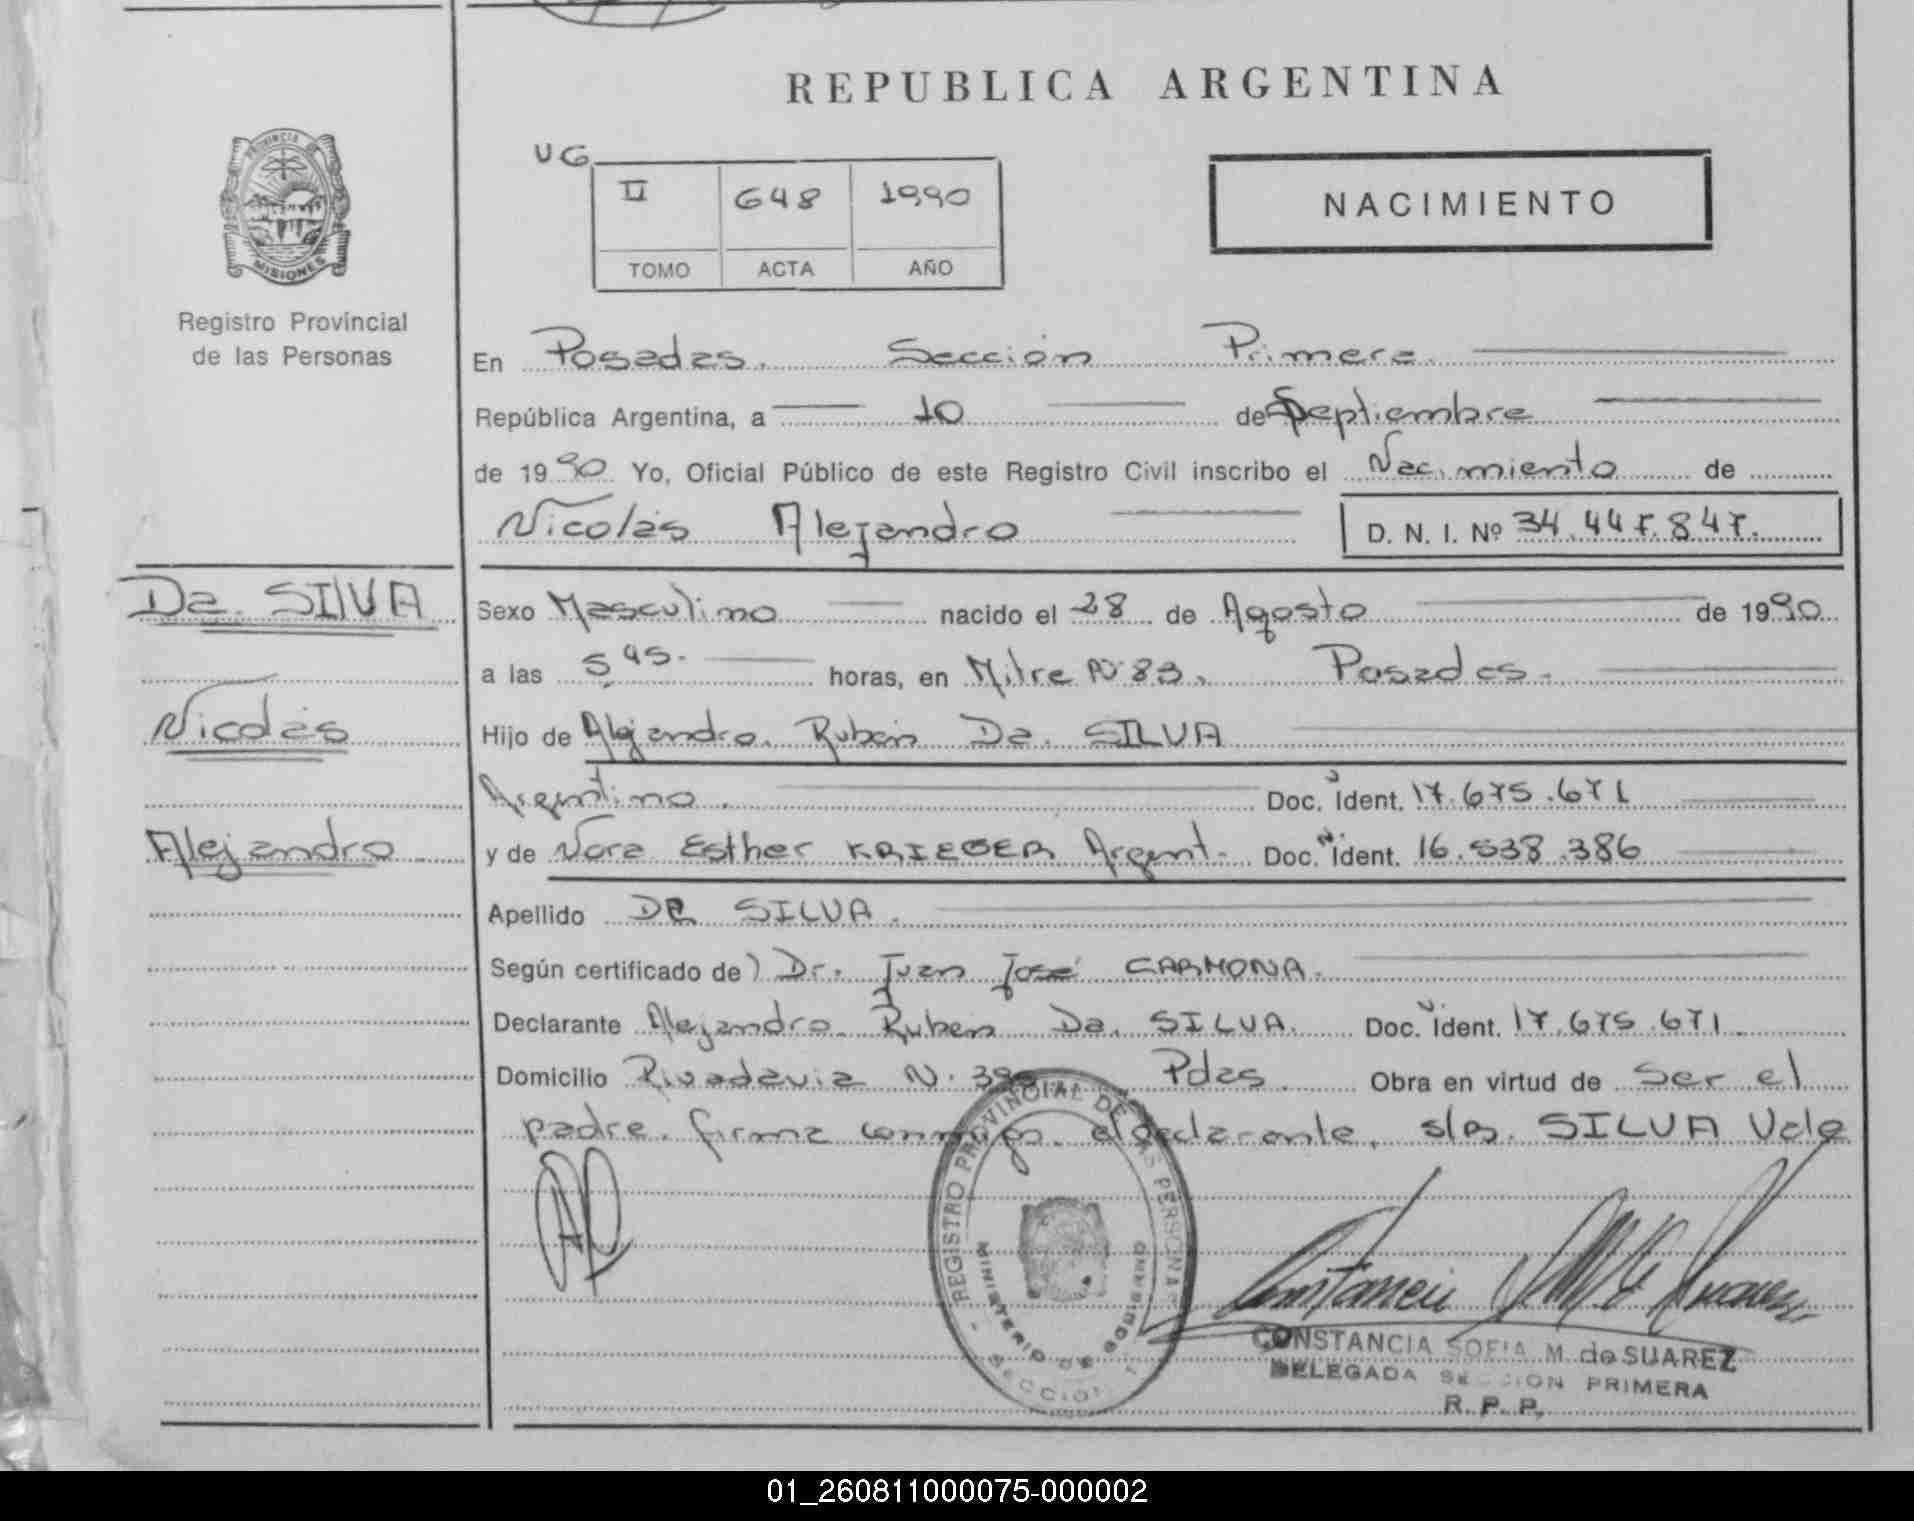 REPUBLICA ARGENTINA
PROVINCIA DE
MISIONES
Registro Provincial
de las Personas
UG
II 648 1990
TOMO ACTA AÑO
NACIMIENTO
En Posadas. Sección Primera
República Argentina, a 10 de Septiembre
de 1990 Yo, Oficial Público de este Registro Civil inscribo el Nacimiento de
Nicolás Alejandro D. N. I. Nº 34.447.847.
Da. SILVA
Nicolás
Alejandro
Sexo Masculino nacido el 28 de Agosto de 1990
a las 5 45. horas, en Mitre Nº 83. Posadas.
Hijo de Alejandro. Ruben Da. SILVA
Argentino. Doc. Ident. 17.675.671
y de Nora Esther KRIEGER Argent. Doc. Ident. 16.538.386
Apellido Da SILVA.
Según certificado de) Dr. Juan José CARMONA.
Declarante Alejandro. Ruben Da. SILVA. Doc. Ident. 17.675.671.
Domicilio Rivadavia N. Pdas. Obra en virtud de Ser el
padre. firma conmigo. el declarante. s/b. SILVA Vale
REGISTRO PROVINCIAL DE LAS PERSONAS
MINISTERIO DE GOBIERNO
SECCION 1
CONSTANCIA SOFIA M. de SUAREZ
DELEGADA SECCION PRIMERA
R. P. P.
01_260811000075-000002